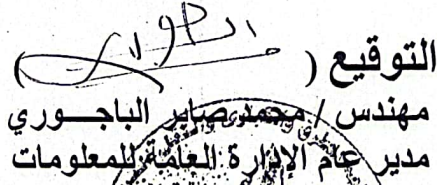 التوقيع ( )
مهندس / محمد صابر الباجـــوري
مدير عام الإدارة العامة للمعلومات